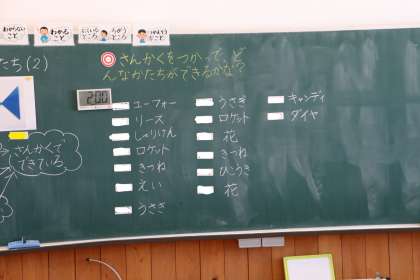 わからない
こと
わかる
こと
にている
ところ
ちがう
ところ
こと
さんかくをつかって、ど
んなかたちができるかな?
たち(2)
200
ユーフォー
リース
しゅりけん
ロケット
きつね
えい
うさぎ
うさぎ
ロケット
花
きつね
ひこうき
花
キャンディ
ダイヤ
さんかくで
できている